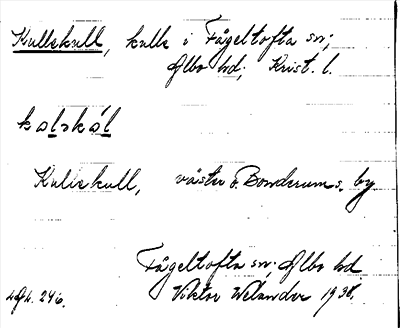 Kullekull, kulle i Fågeltofta sn;
Albo hd; Krist. l.
Kullekull, väster o. Bonderums by
Fågeltofta sn; Albo hd.
Viktor Welander 1938.